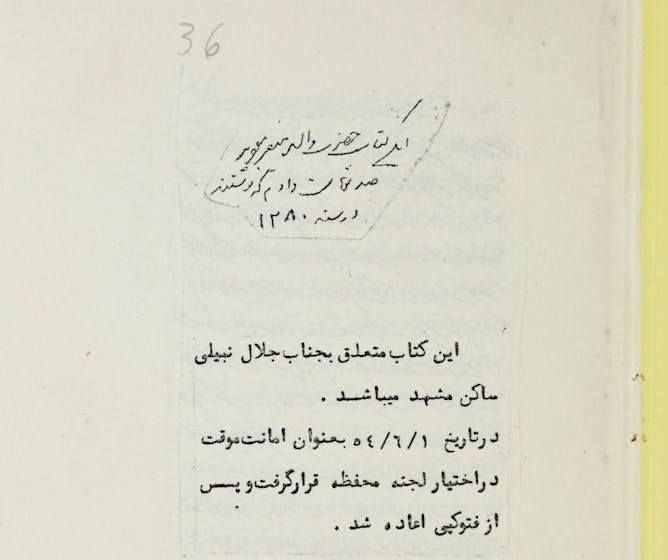 36
این کتاب حضرت والد
دادم که نوشتند
در سنه ۱۲۸۰
این کتاب متعلق بجناب جلال نبیلی
ساکن مشهد میباشد .
درتاریخ ۵۴/۶/۱ بعنوان امانت موقت
دراختیار لجنه محفظه قرارگرفت و پس
از فتوکپی اعاده شد .